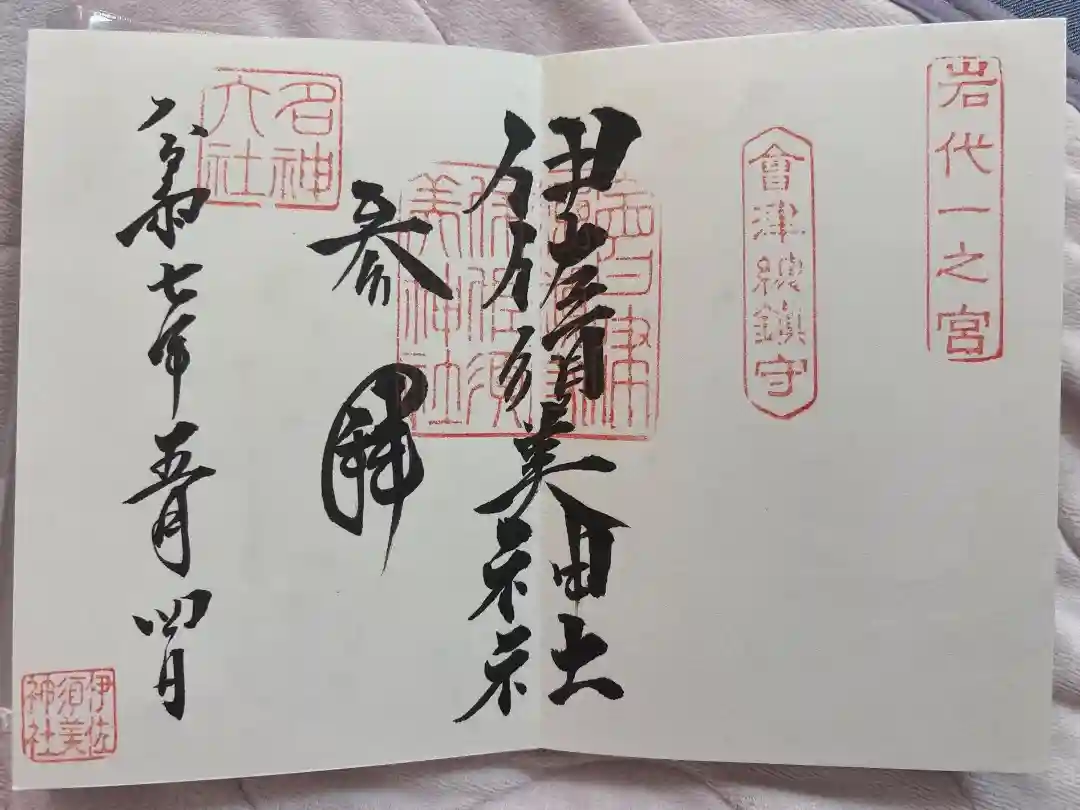 岩代一之宮
會津總鎮守
伊佐須美神社
伊佐須
美神社
参拝
名神
大社
令和七年五月四日
伊佐
須美
神社